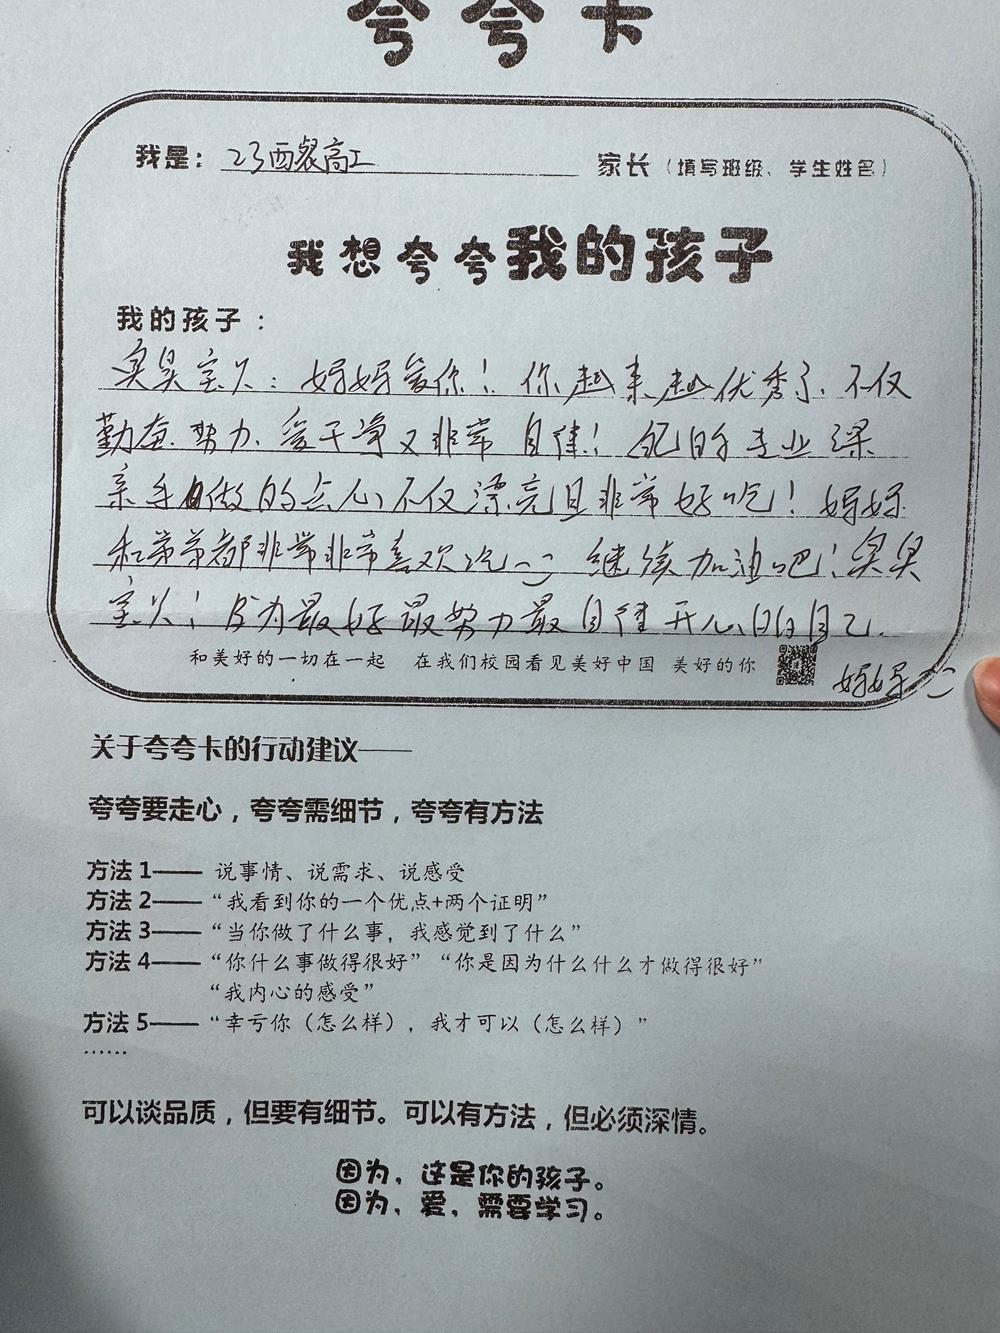 夸夸卡
我是：23西餐高工 家长（填写班级、学生姓名）
我想夸夸我的孩子
我的孩子：
昊昊宝贝：妈妈爱你！你越来越优秀了、不仅
勤奋、努力、爱干净又非常自律！你的专业课
亲手做的点心不仅漂亮且非常好吃！妈妈
和弟弟都非常非常喜欢吃 继续加油吧！昊昊
宝贝！成为最好最努力最自律开心的自己.
和美好的一切在一起 在我们校园看见美好中国 美好的你
妈妈
关于夸夸卡的行动建议——
夸夸要走心，夸夸需细节，夸夸有方法
方法1—— 说事情、说需求、说感受
方法2——“我看到你的一个优点+两个证明”
方法3——“当你做了什么事，我感觉到了什么”
方法4——“你什么事做得很好”“你是因为什么什么才做得很好”
“我内心的感受”
方法5——“幸亏你（怎么样），我才可以（怎么样）”
……
可以谈品质，但要有细节。可以有方法，但必须深情。
因为，这是你的孩子。
因为，爱，需要学习。